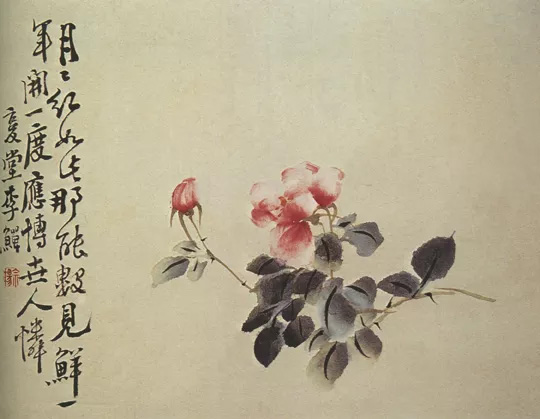 月〻紅如此那能數見鮮一
年開一度應博世人憐
复堂李鱓